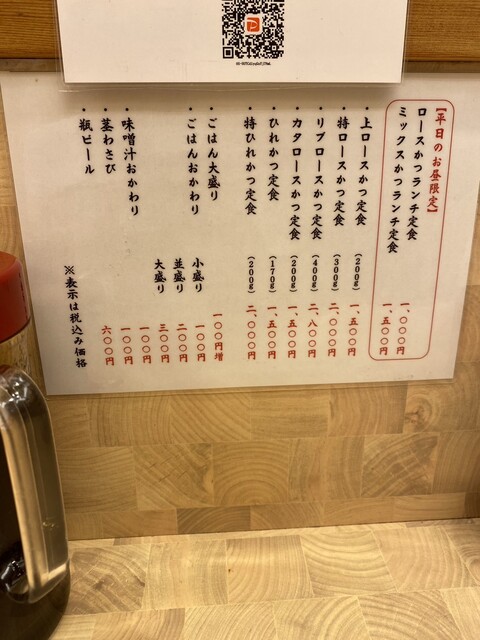 【平日のお昼限定】
ロースかつランチ定食 一、〇〇〇円
ミックスかつランチ定食 一、五〇〇円
・上ロースかつ定食 (200g) 一、五〇〇円
・特ロースかつ定食 (300g) 二、〇〇〇円
・リブロースかつ定食 (400g) 二、八〇〇円
・カタロースかつ定食 (200g) 一、五〇〇円
・ひれかつ定食 (170g) 一、五〇〇円
・特ひれかつ定食 (200g) 二、〇〇〇円
・ごはん大盛り 一〇〇円増
・ごはんおかわり 小盛り 一〇〇円
並盛り 二〇〇円
大盛り 三〇〇円
・味噌汁おかわり 一〇〇円
・茎わさび 一〇〇円
・瓶ビール 六〇〇円
※表示は税込み価格